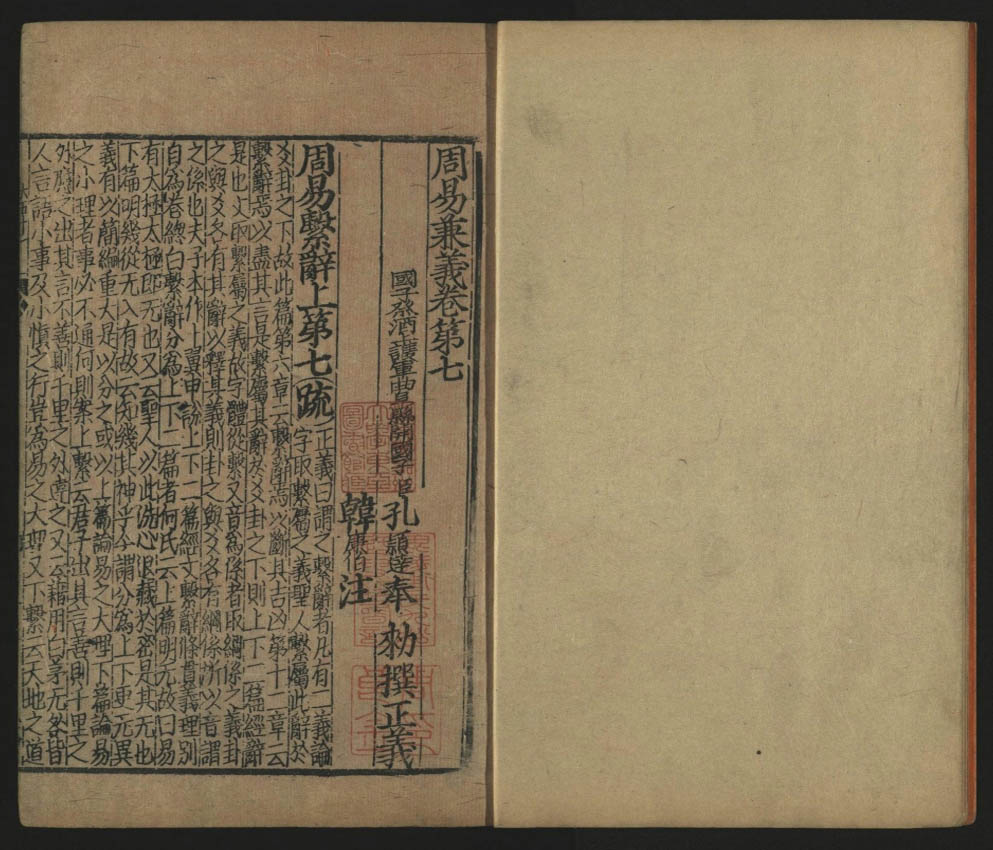 周易兼義卷第七
國子祭酒上護軍曲阜縣開國子臣孔穎達奉 勑撰正義
韓康伯注
周易繫辭上第七疏正義曰謂之繫辭者凡有二義論
字取繫屬之義聖人繫屬此辭於
爻卦之下故此篇第六章云繫辭焉以斷其吉凶第十二章云
繫辭焉以盡其言是繫屬其辭於爻卦之下則上下二篇經辭
是也文取繫屬之義故字體從繫又音為係者取綱係之義卦
之與爻各有其辭以釋其義則卦之與爻各有綱係所以音謂
之係也夫子本作十翼申說上下二篇經文繫辭條貫義理別
自為卷總曰繫辭分為上下二篇者何氏云上篇明无故曰易
有太極太極即无也又云聖人以此洗心退藏於密是其无也
下篇明幾從无入有故云知幾其神乎今謂分為上下更无異
義有以簡編重大是以分之或以上篇論易之大理下篇論易
之小理者事必不通何則案上繫云君子出其言善則千里之
外應之出其言不善則千里之外違之又云藉用白茅无咎皆
人言語小事及小慎之行豈為易之大理又下繫云天地之道